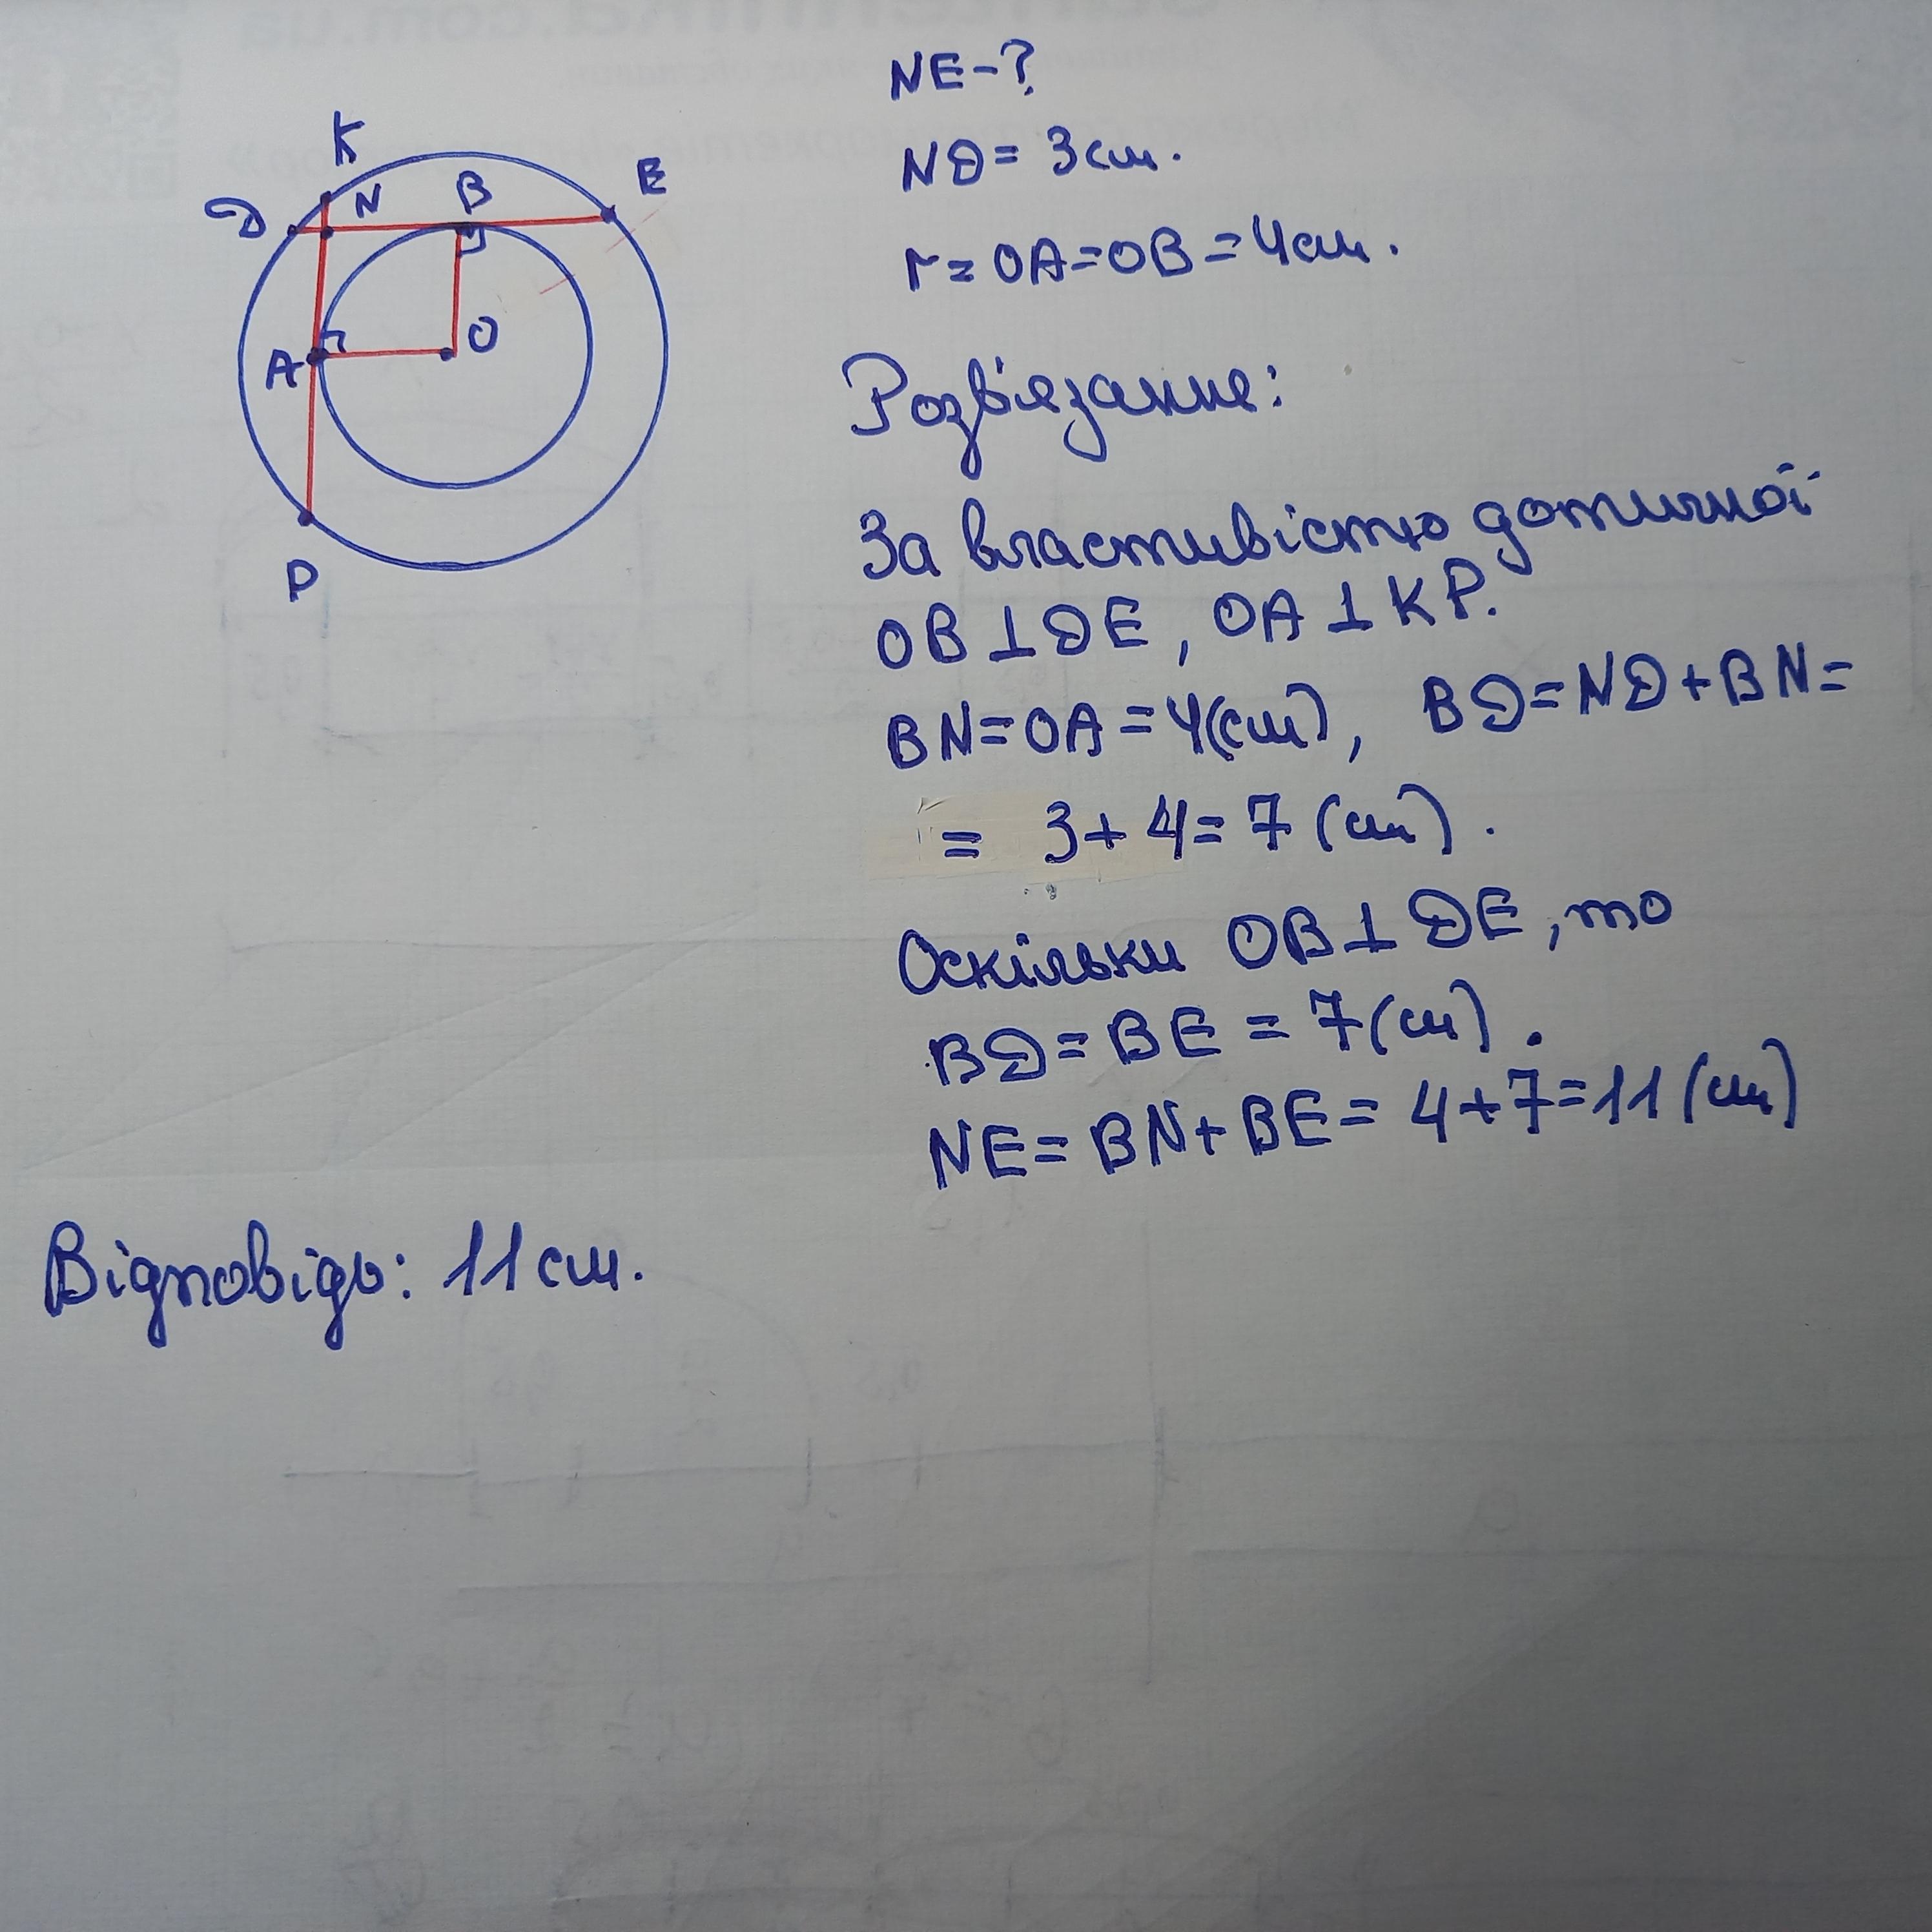 K
N
B
E
D
A
O
P
NE-?
ND = 3см.
r = OA = OB = 4см.
Розв'язание:
За властивістю дотичної
OB⊥DE, OA⊥KP.
BN = OA = 4(см), BD = ND + BN =
= 3 + 4 = 7 (см).
Оскільки OB⊥DE, то
BD = BE = 7(см).
NE = BN + BE = 4 + 7 = 11 (см)
Відповідь: 11 см.